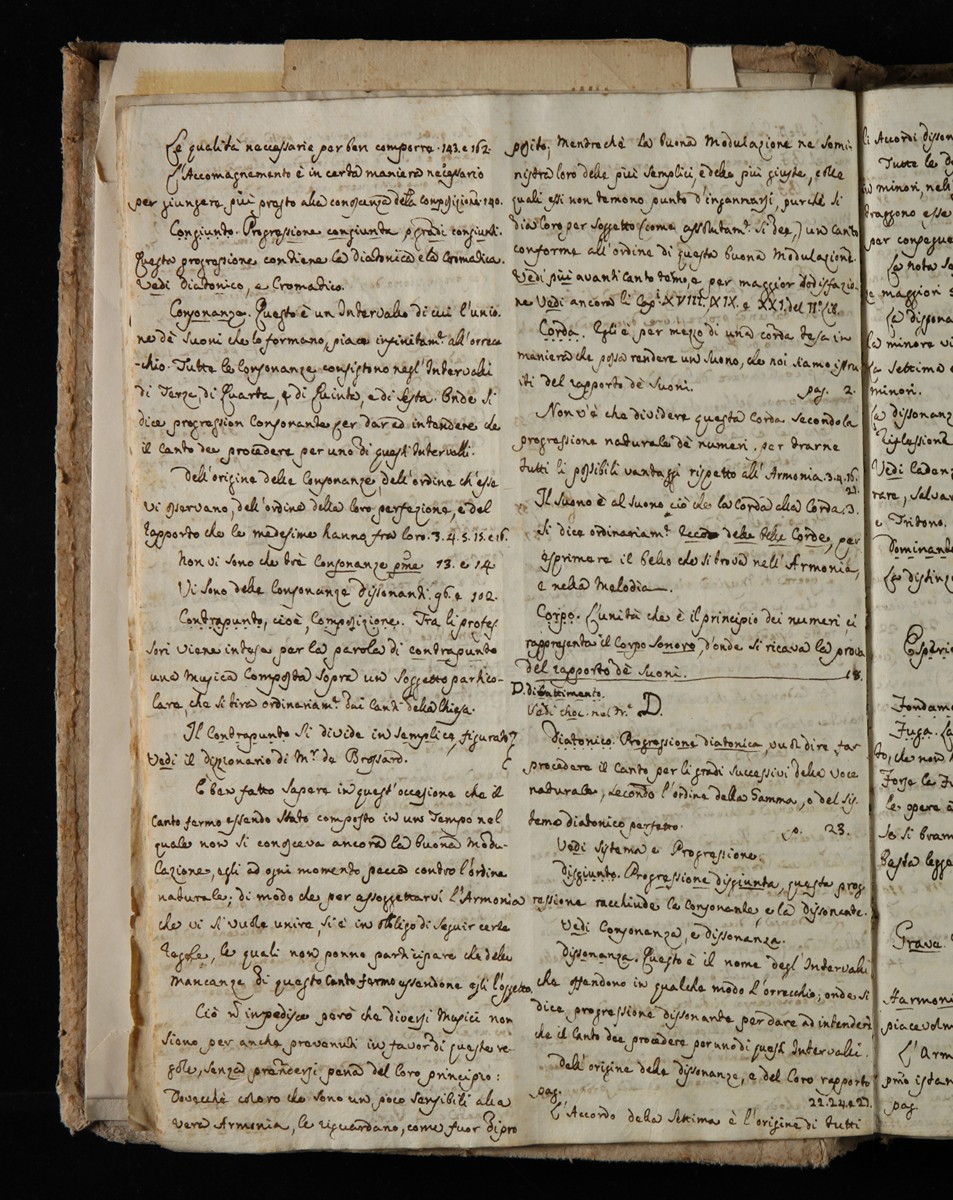 Le qualità necessarie per ben comporre. 143. e 162.
L'Accomagnemento è in certa maniera necessario
per giungere più presto alla conoscenza della composizione. 140.
Congiunto. Progressione congiunta p gradi congiunti.
Questa progressione contiene la diatonica e la Cromatica.
Vedi Diatonico, e Cromatico.
Consonanza. Questo è un Intervallo di cui l'unio-
ne de Suoni che lo formano, piace infinitam.e all'orrec-
-chio. Tutte le Consonanze consistono negl'Intervalli
di Terza, di Quarta, e di Quinta, e di Sesta. Onde si
dice progression Consonante per dar ad intendere che
il canto dee procedere per uno di questi Intervalli.
Dell'origine delle Consonanze, dell'ordine ch'esse
vi osservano, dell'ordine della loro perfezione, e del
rapporto che le medesime hanno fra loro. 3. 4. 5. 15. e 16.
Non vi sono che tre Consonanze pme 13. e 14
Vi sono delle Consonanze dissonanti. 96. e 102.
Contrapunto, cioè, Composizione. Tra li profes-
sori viene intesa per la parola di contrapunto
una Musica Composta sopra un Soggetto partico-
lare, che si tira ordinariam.e dai Canti della Chiesa.
Il Contrapunto si divide in semplice, figurato &
Vedi il dizionario di M.r de Brossard.
È ben fatto sapere in quest'occasione che il
Canto fermo essendo stato composto in un Tempo nel
quale non si conosceva ancora la buona Modu-
lazione, egli ad ogni momento pecca contro l'ordine
naturale; di modo che per assoggettarvi l'Armonia
che vi si vuole unire, si è in obbligo di seguir certe
regole, le quali non ponno participare che delle
mancanze di questo Canto fermo essendone egli l'oggetto.
Ciò n impedisce però che diversi Musici non
siano per anche prevenuti in favor di queste re-
gole, senza prendersi pena del loro principio:
Dovecchè coloro che sono un poco sensibili alla
vera Armonia, le riguardano, come fuor di pro
posito, Mentrechè la buona Modulazione ne somi-
nistra loro delle più semplici, e delle più giuste, colle
quali essi non temono punto d'ingannarsi, purchè si
dia loro per Soggetto (come assolutam.e si dee,) un Canto
conforme all'ordine di questa buona Modulazione.
Vedi più avanti Canto fermo, e per maggior sodisfazio-
ne Vedi ancora li Cap.i XVIII. XIX. e XXI. del II.o Lib.
Corda. Egli è per mezo di una corda tesa in
maniera che possa rendere un suono, che noi siamo istru
iti del rapporto de Suoni. pag. 2.
Non v'è che dividere questa Corda secondo la
progressione naturale de numeri, per trarne
tutti li possibili vantaggi rispetto all'Armonia. 3. 4. 16.
21.
Il Suono è al Suono ciò che la Corda alla Corda. 3.
Si dice ordinariam.e delle belle Corde, per
esprimere il bello che si trova nell'Armonia,
e nella Melodia.
Corpo. L'unità che è il principio dei numeri, ci
rappresenta il Corpo Sonoro, d'onde si ricava la prova
del rapporto de Suoni. 18.
D.
Vedi
D.
Diatonico. Progressione diatonica, vuol dire, far
procedere il Canto per li gradi successivi della voce
naturale, secondo l'ordine della Gamma, o del Sis-
tema diatonico perfetto. p. 23.
Vedi Systema e Progressione.
Disgiunto. Progressione disgiunta, questa prog-
ressione racchiude la Consonante, e la dissonante.
Vedi Consonanza, e dissonanza.
Dissonanza. Questo è il nome degl'Intervalli
che offendono in qualche modo l'orrecchio; onde si
dice progressione dissonante per dare ad intendere
che il canto dee procedere per uno di questi Intervalli.
Dell'origine della dissonanza, e del loro rapporto
pag. 22. 24. e 27.
L'Accordo della Settima è l'origine di tutti
li Accordi disson
Tutte le d
minori, nell
traggono esse
per conseguen
La nota s
maggiori
La dissona
la minore vi
la Settima
minori.
La dissonanz
Riflessioni
Vedi Cadenz
rare, Salvar
e Tritono.
Dominante
La distinz
Fondam
Fuga. La
to, che non
Forse le F
le opere
se si bram
Basta legge
Grave.
Harmoni
piacevolm
L'Arm
pag.